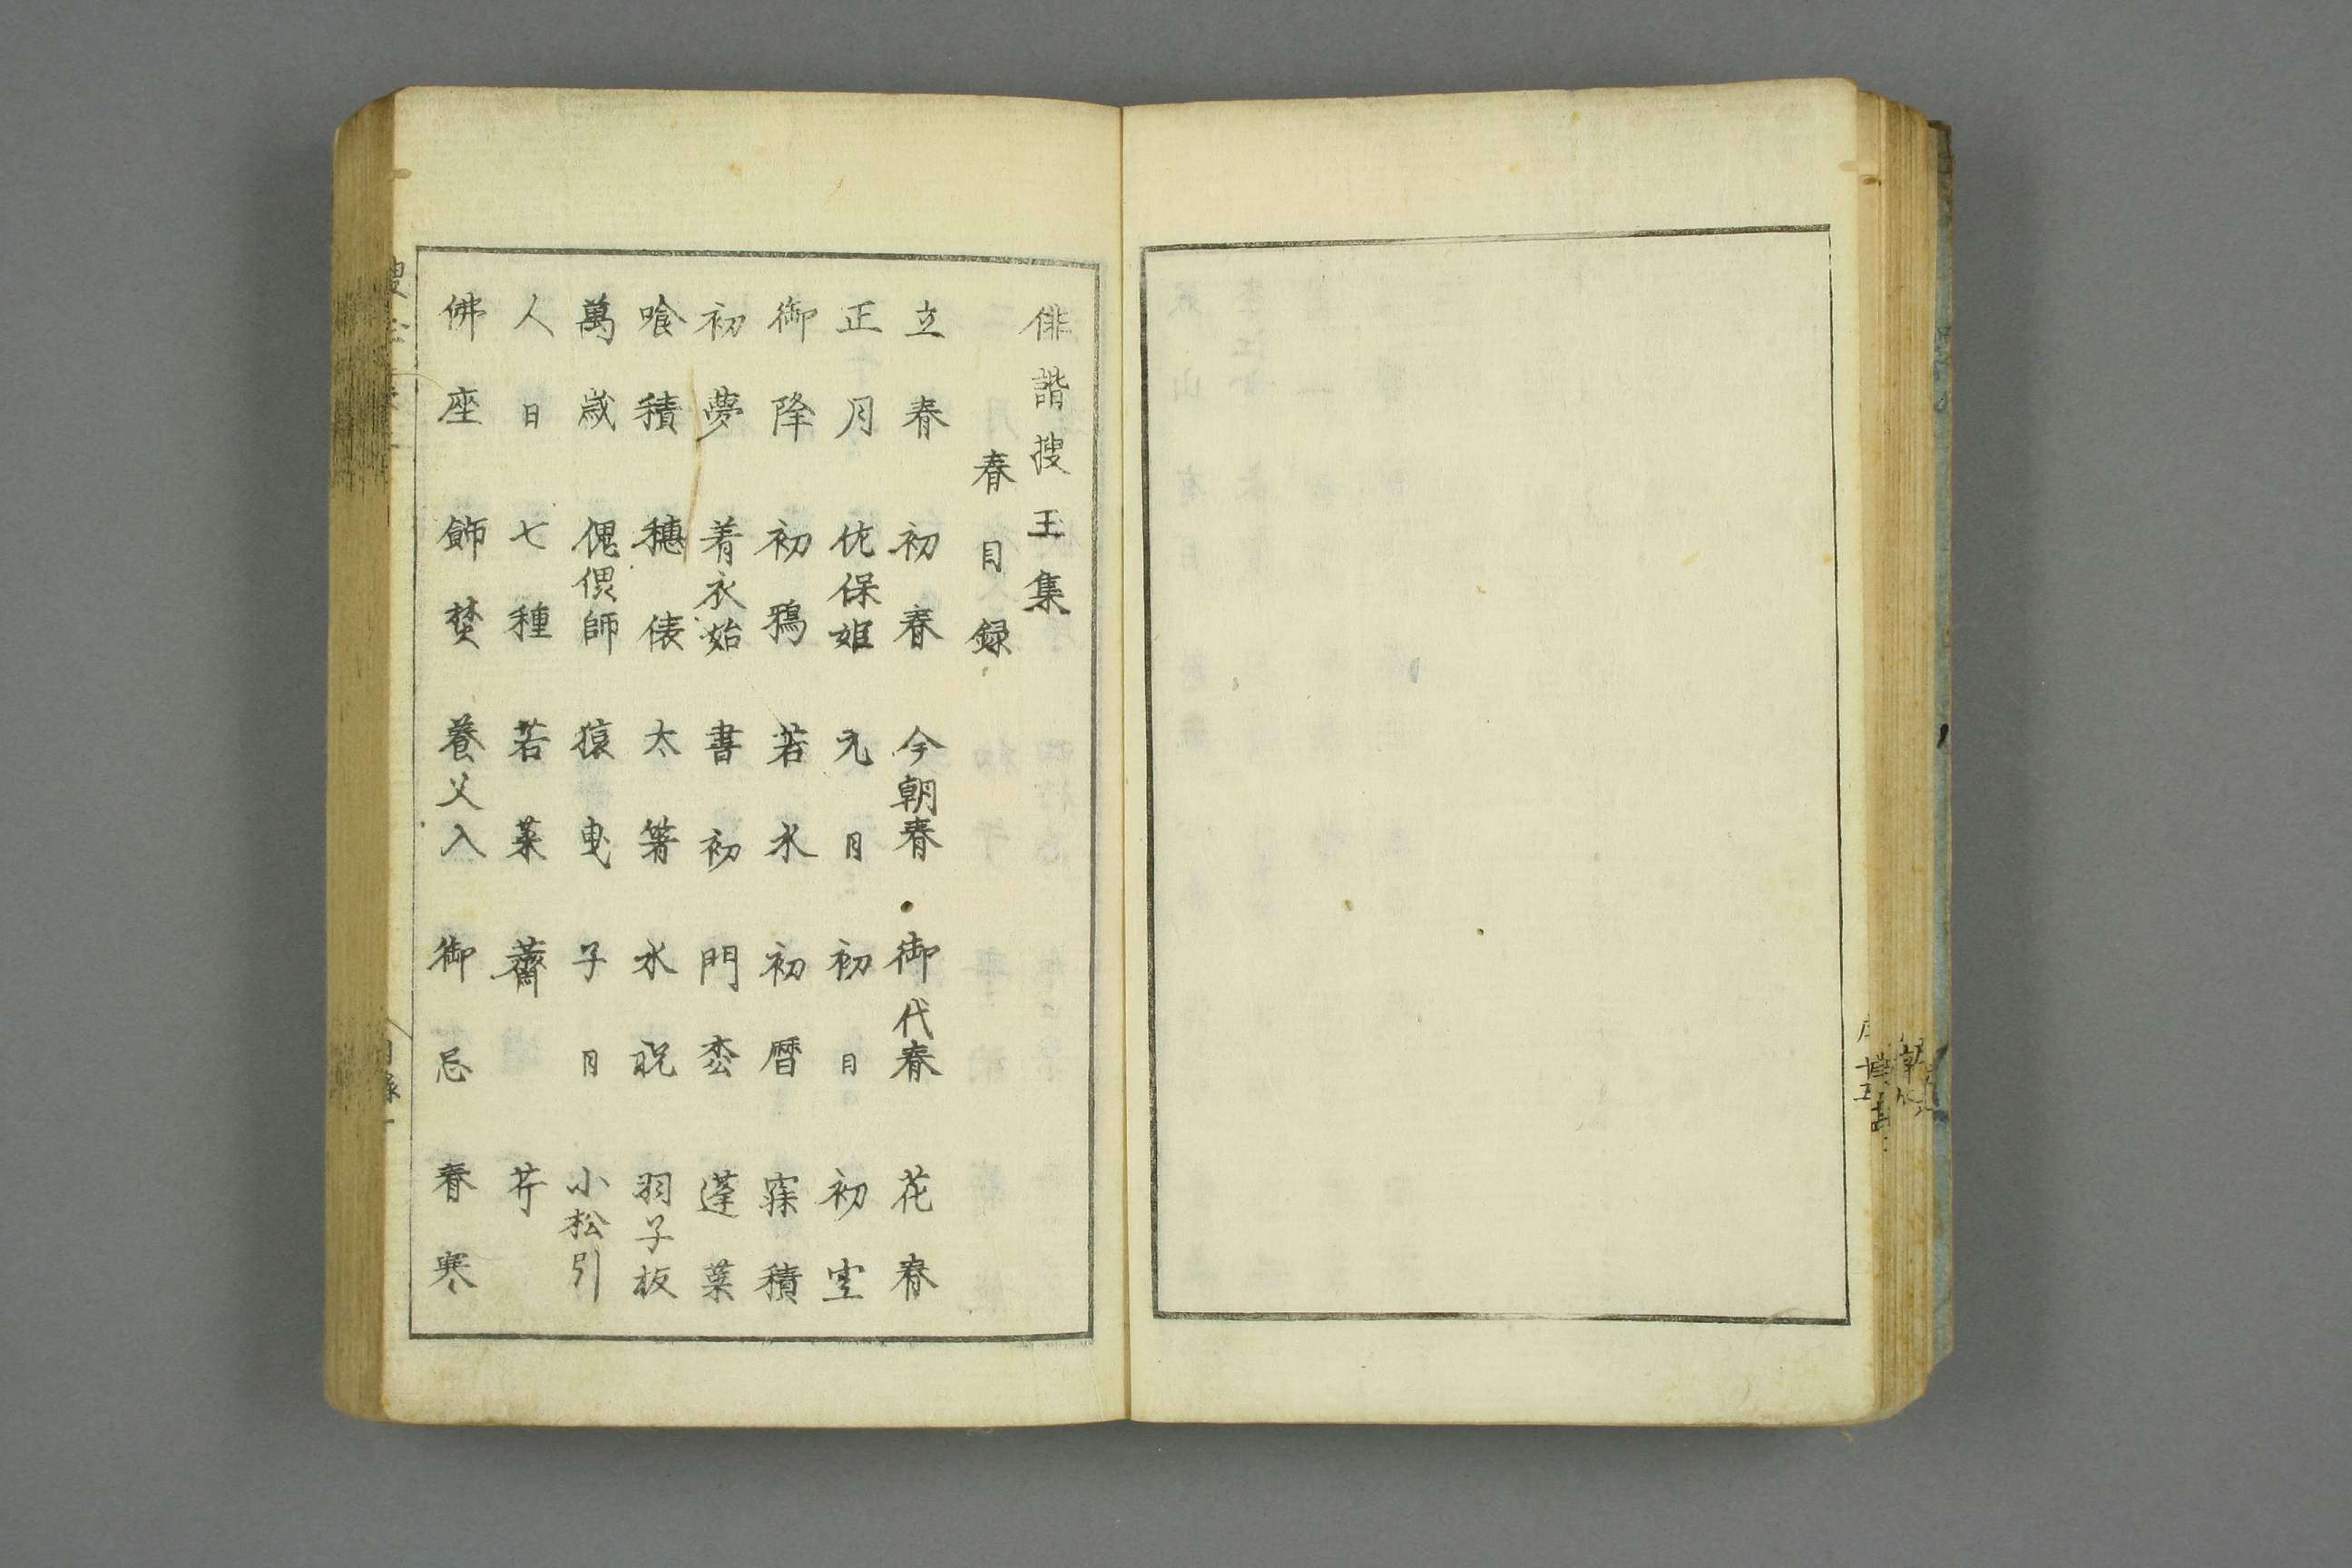 俳諧捜玉集
春目録
立春 初春 今朝春 御代春 花春
正月 佐保姫 元日 初日 初空
御降 初鴉 若水 初暦 寐積
初夢 着衣始 書初 門枩 蓬莱
喰積 穂俵 太箸 水祝 羽子板
萬歳 傀儡師 猿曳 子日 小松引
人日 七種 若菜 薺 芹
佛座 飾焚 養父入 御忌 春寒